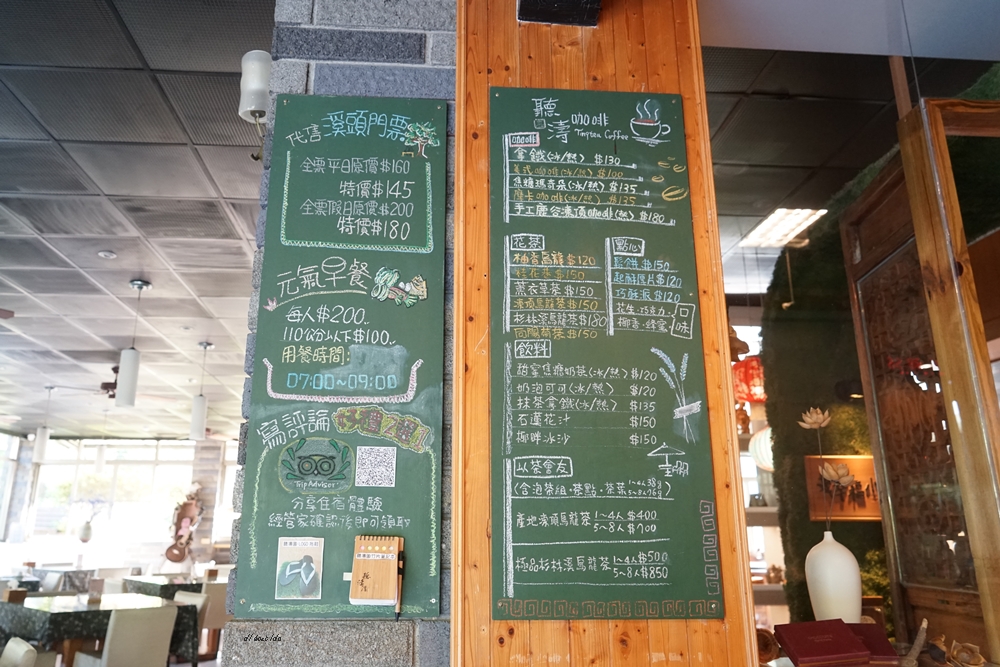 代售溪頭門票
全票平日原價$160
特價$145
全票假日原價$200
特價$180
元氣早餐
每人$200
110公分以下$100
用餐時間:
07:00~09:00
寫評論
好禮
TripAdvisor
分享住宿體驗
經管家確認後即可領取
聽濤咖啡
Tingtau Coffee
咖啡
拿鐵(冰/熱) $130
美式咖啡(冰/熱) $100
焦糖瑪奇朵(冰/熱) $135
摩卡(冰/熱) $135
手工鹿谷凍頂咖啡(熱) $180
花茶
柚香烏龍 $120
桂花茶 $150
薰衣草茶 $150
凍頂烏龍茶 $150
杉林溪烏龍茶 $180
$150
點心
鬆餅 $150
起酥厚片 $120
巧酥派 $120
花生.巧克力.
椰香.蜂蜜
口味
飲料
甜蜜焦糖奶茶(冰/熱) $120
奶泡可可(冰/熱) $120
抹茶拿鐵(冰/熱) $135
石蓮花汁 $150
椰咔冰沙 $150
以茶會友
(含泡茶組.茶點.茶葉
產地凍頂烏龍茶 1~4人 $400
5~8人 $700
極品杉林溪烏龍茶 1~4人 $500
5~8人 $850